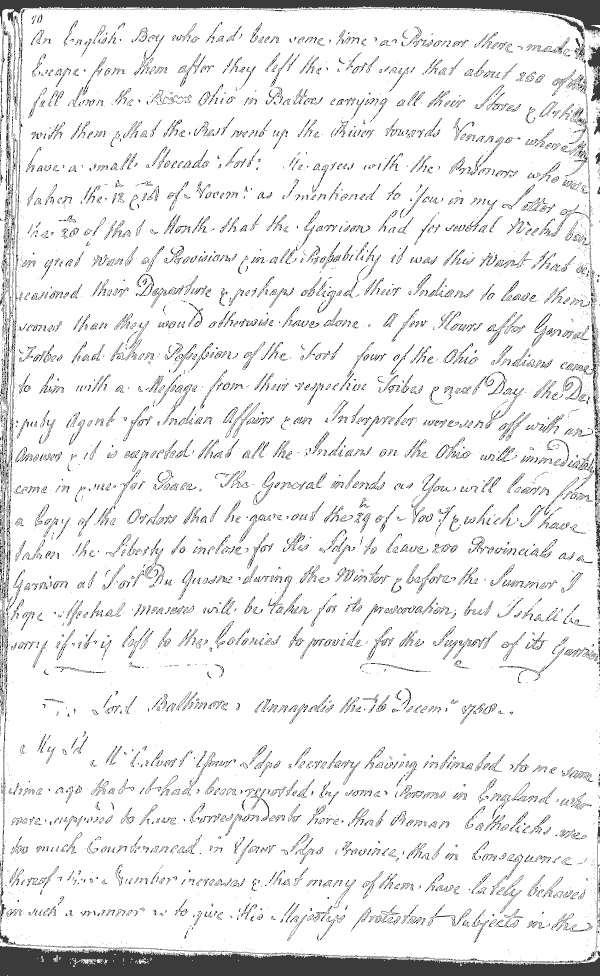 70
An English Boy who had been some time a Prisoner there made
Escape from them after they left the Fort says that about 200 of
fell down the Ohio in Battoes carrying all their Stores & Artil
with them & that the Rest went up the River towards Venango where they
have a small Stoccado Fort: He agrees with the Prisoners who were
taken the 12th & of Novemr as I mentioned to You in my Letter of
the 28th of that Month that the Garrison had for several Weeks been
in great Want of Provisions & in all Probability it was this Want that oc
:casioned their Departure & perhaps obliged their Indians to leave them
sooner than they would otherwise have done. A few Hours after General
Forbes had taken Possession of the Fort four of the Ohio Indians came
to him with a Message from their respective Tribes & next Day the De
:puty Agent for Indian Affairs & an Interpreter were sent off with an
Answer & it is expected that all the Indians on the Ohio will immediately
come in & sue for Peace. The General intends as You will learn from
a Copy of the Orders that he gave out the 29th of Novr & which I have
taken the Liberty to inclose for His Ldp to leave 200 Provincials as a
Garrison at Fort Du Quesne during the Winter & before the Summer I
hope effectual measures will be taken for its preservation, but I shall be
sorry if it is left to the Colonies to provide for the Support of its Garrison
To Lord Baltimore, Annapolis the 16 Decemr 1758.
My Ld
Mr Calvert Your Ldps Secretary having intimated to me some
time ago that it had been reported by some Persons in England who
were supposed to have Correspondents here that Roman Catholicks are
too much Countenanced in Your Ldps Province, that in Consequence
thereof their Number increases & that many of them have lately behaved
in such a manner as to give His Majesty's Protestant Subjects in the